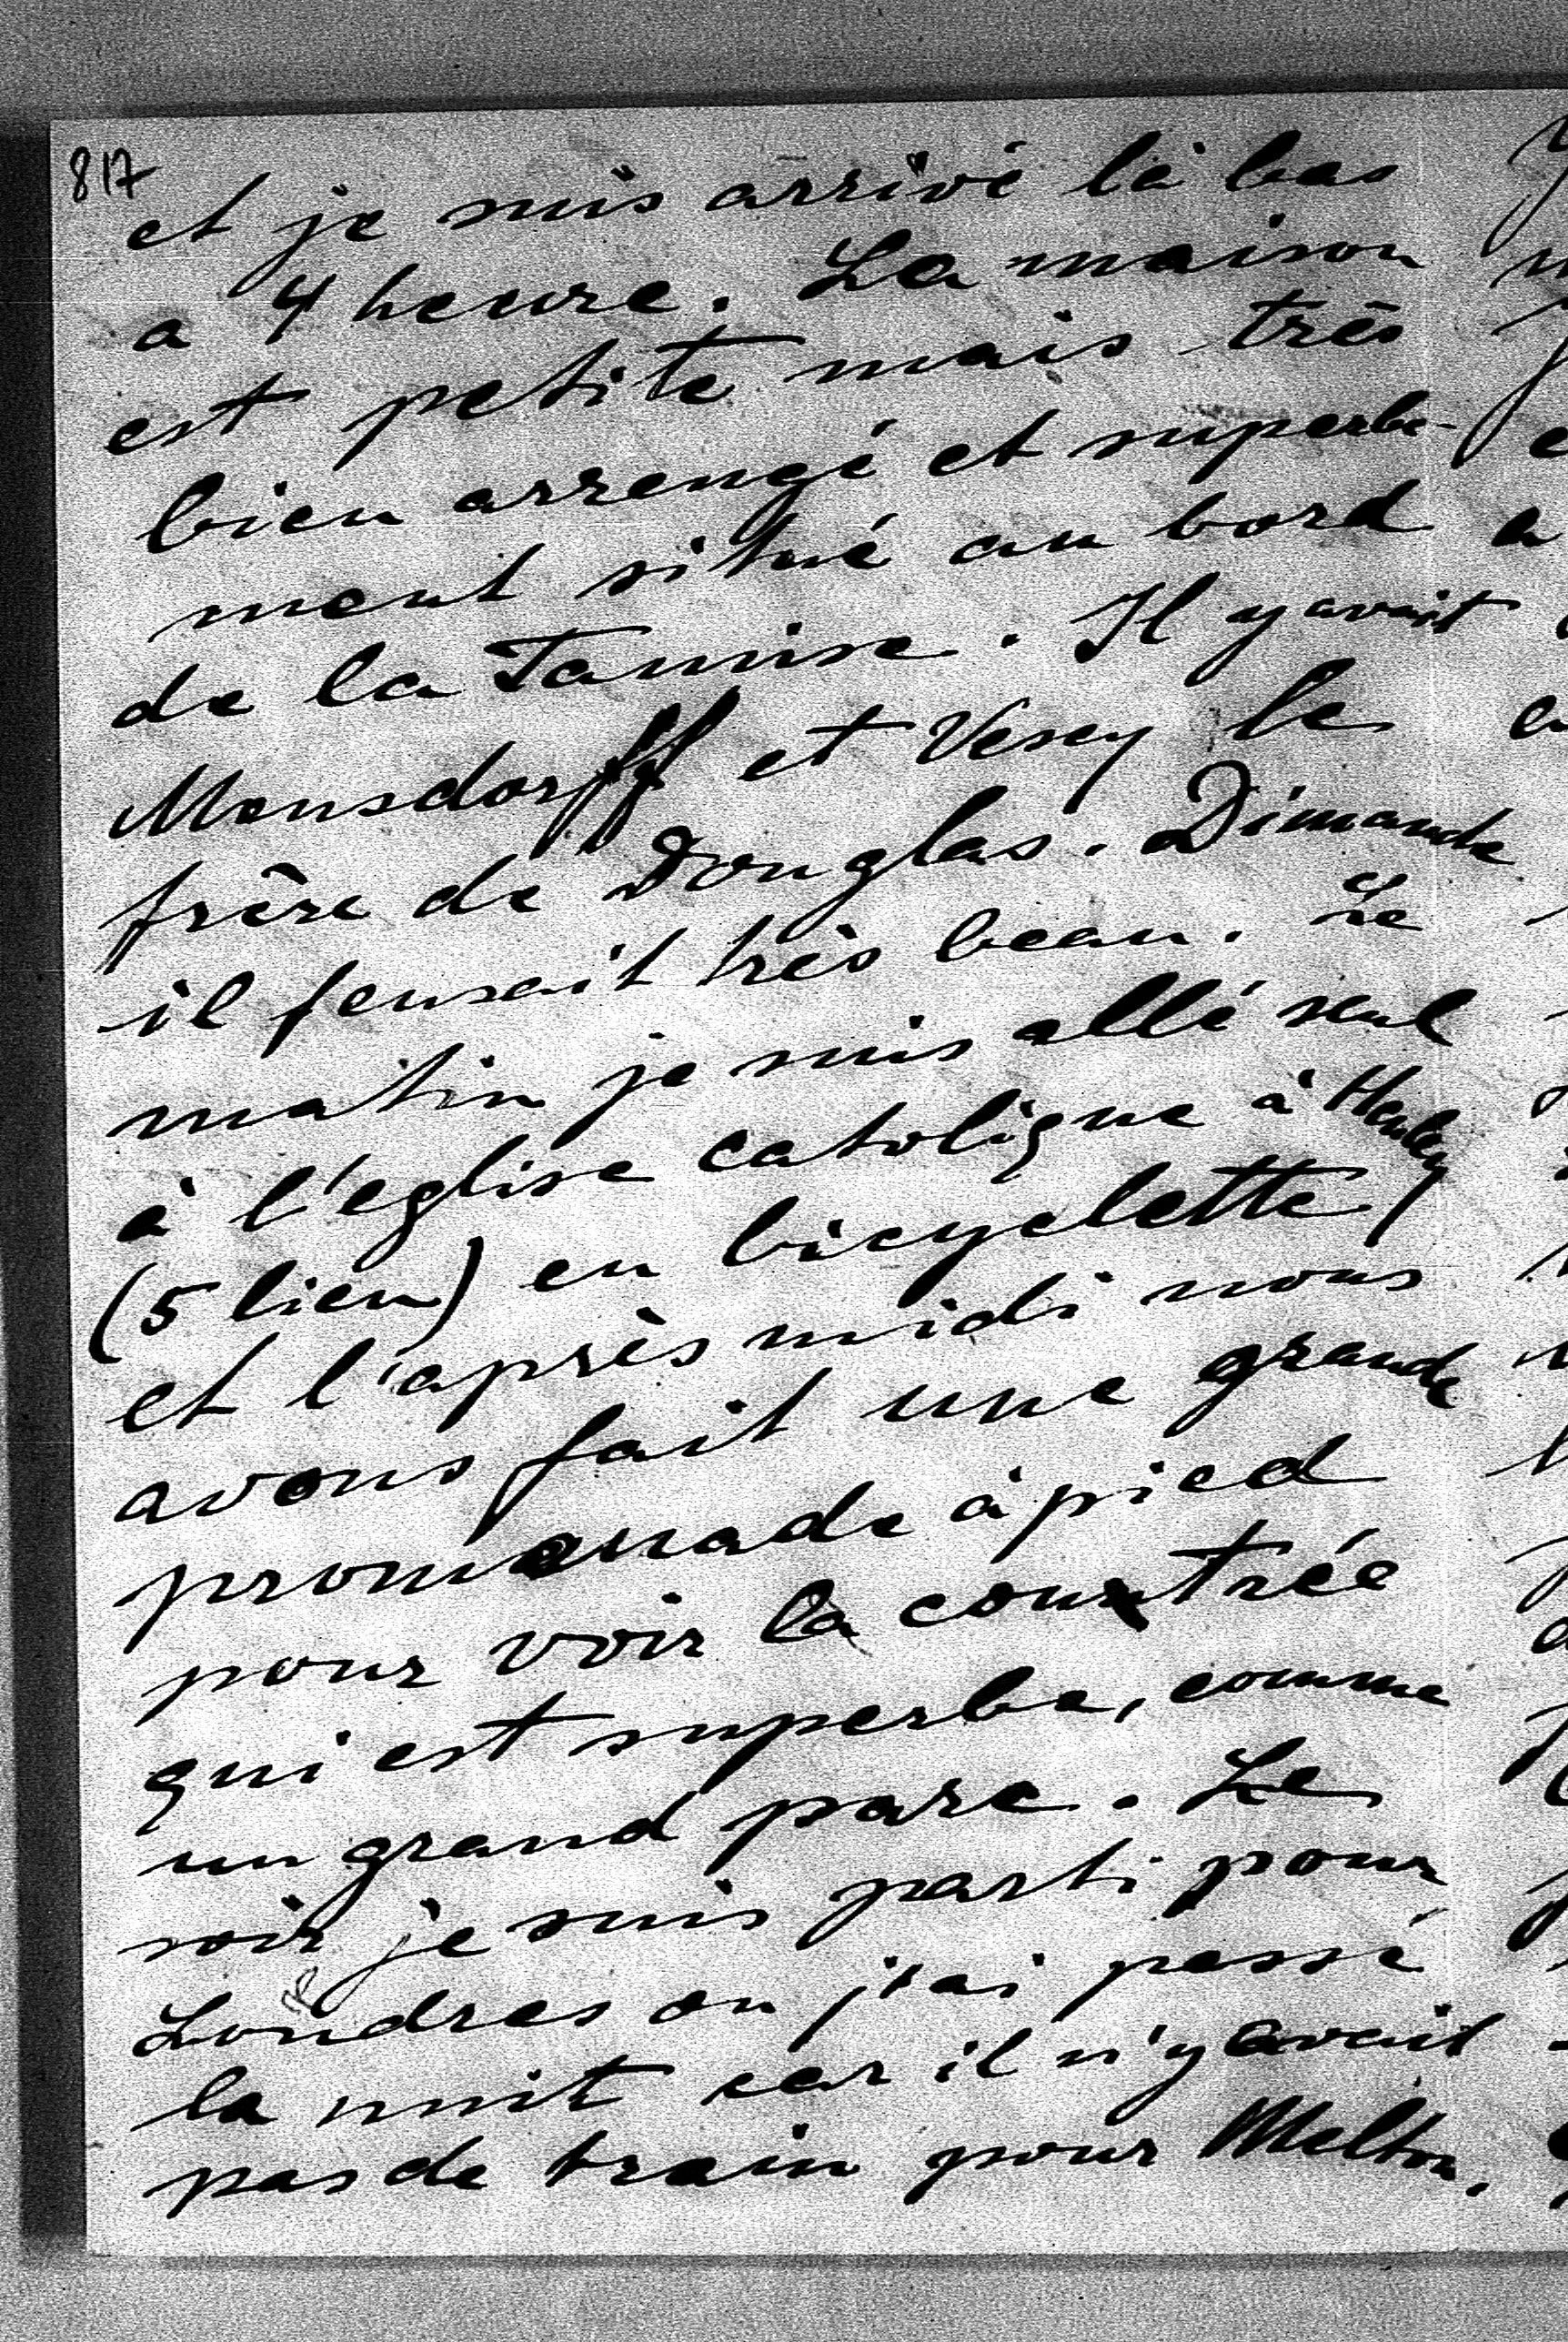 817
et je suis arrivé là bas
a 4 heure. La maison
est petite mais très
bien arrengé et superbe-
ment situé au bord
de la Tamise. Il y avait
Mensdorff et Vesey le
frère de Douglas. Dimanche
il feusait très beau. Le
matin je suis allé seul
à l'eglise catolique à Henley
(5 lieu) en bicyclette
et l'après midi nous
avons fait une grande
promenade à pied
pour voir la contrée
qui est superbe, comme
un grand parc. Le
soir je suis parti pour
Londres ou j'ai passé
la nuit car il n'y avait
pas de train pour Melton.